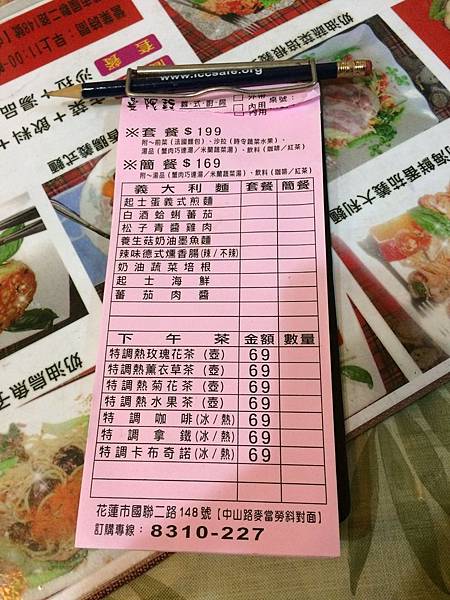 營業時間：早上11:00
沙拉＋湯品
＋飲料＋
奶油蔬菜培根義
海鮮番茄義大利麵
奶油烏魚子
www.iccsafe.org
義‧式‧廚‧房
內用
※套餐$199
附～前菜（法國麵包）、沙拉（時令蔬菜水果）、
湯品（蟹肉巧達湯／米蘭蔬菜湯）、飲料（咖啡／紅茶）
※簡餐$169
附～湯品（蟹肉巧達湯／米蘭蔬菜湯）、飲料（咖啡／紅茶）
義大利麵 套餐 簡餐
起士蛋義式煎麵
白酒蛤蜊蕃茄
松子青醬雞肉
養生菇奶油墨魚麵
辣味德式燻香腸(辣/不辣)
奶油蔬菜培根
起士海鮮
蕃茄肉醬
下午茶 金額 數量
特調熱玫瑰花茶(壺) 69
特調熱薰衣草茶(壺) 69
特調熱菊花茶(壺) 69
特調熱水果茶(壺) 69
特調咖啡(冰/熱) 69
特調拿鐵(冰/熱) 69
特調卡布奇諾(冰/熱) 69
花蓮市國聯二路148號【中山路麥當勞斜對面】
訂購專線：8310-227